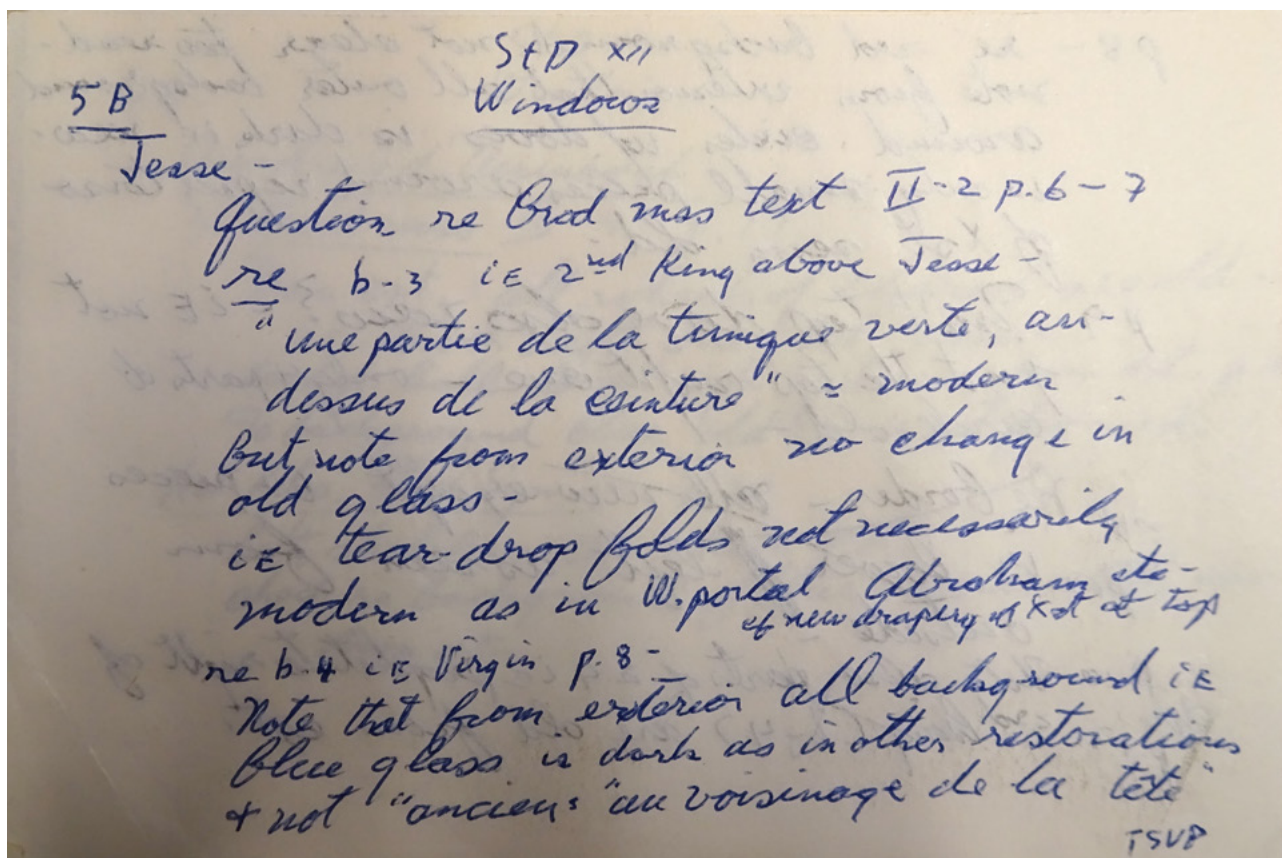 StD XII
5 B Windows
Jesse -
Question re Grod mss text II-2 p. 6-7
re b-3 iE 2nd King above Jesse -
"une partie de la tunique verte, au-
dessus de la ceinture" = modern
But note from exterior no change in
old glass -
iE tear-drop folds not necessarily
modern as in W. portal Abraham etc -
cf new drapery of Xst at top
re b.4 iE Virgin p. 8 -
Note that from exterior all background iE
blue glass is dark as in other restorations
+ not "ancien" "au voisinage de la tête"
TSVP